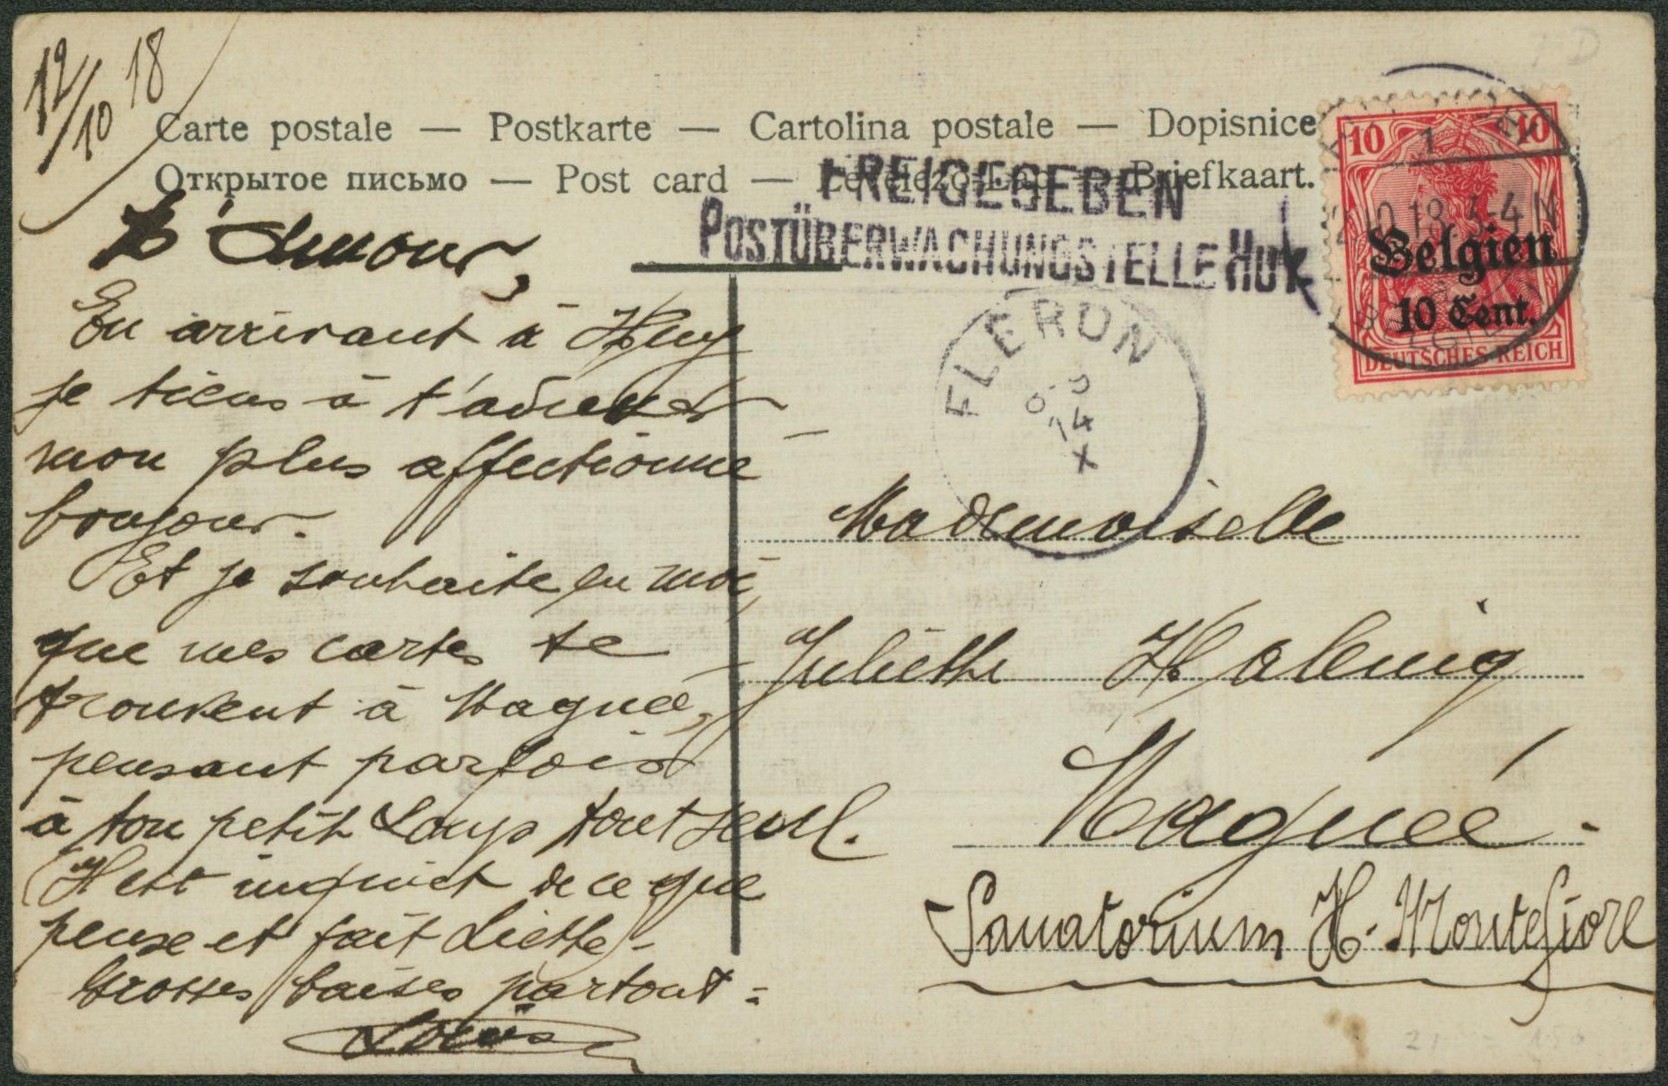 12/10 18
Carte postale — Postkarte — Cartolina postale — Dopisnice
Открытое письмо — Post card — Briefkaart.
FREIGEGEBEN
POSTÜBERWACHUNGSTELLE HUY
10 10
Belgien
10 Cent.
DEUTSCHES REICH
FLERON
P'tit Amour,
En arrivant à Huy
je tiens à t'adresser
mon plus affectionné
bonjour.
Et je souhaite en moi,
que mes cartes te
trouvent à Magnée,
pensant parfois
à ton petit Loup tout seul.
Il est inquiet de ce que
pense et fait Liette -
Grosses baises partout =
Louis
Mademoiselle
Juliette Halenig
Magnée.
Sanatorium H. Montefiore